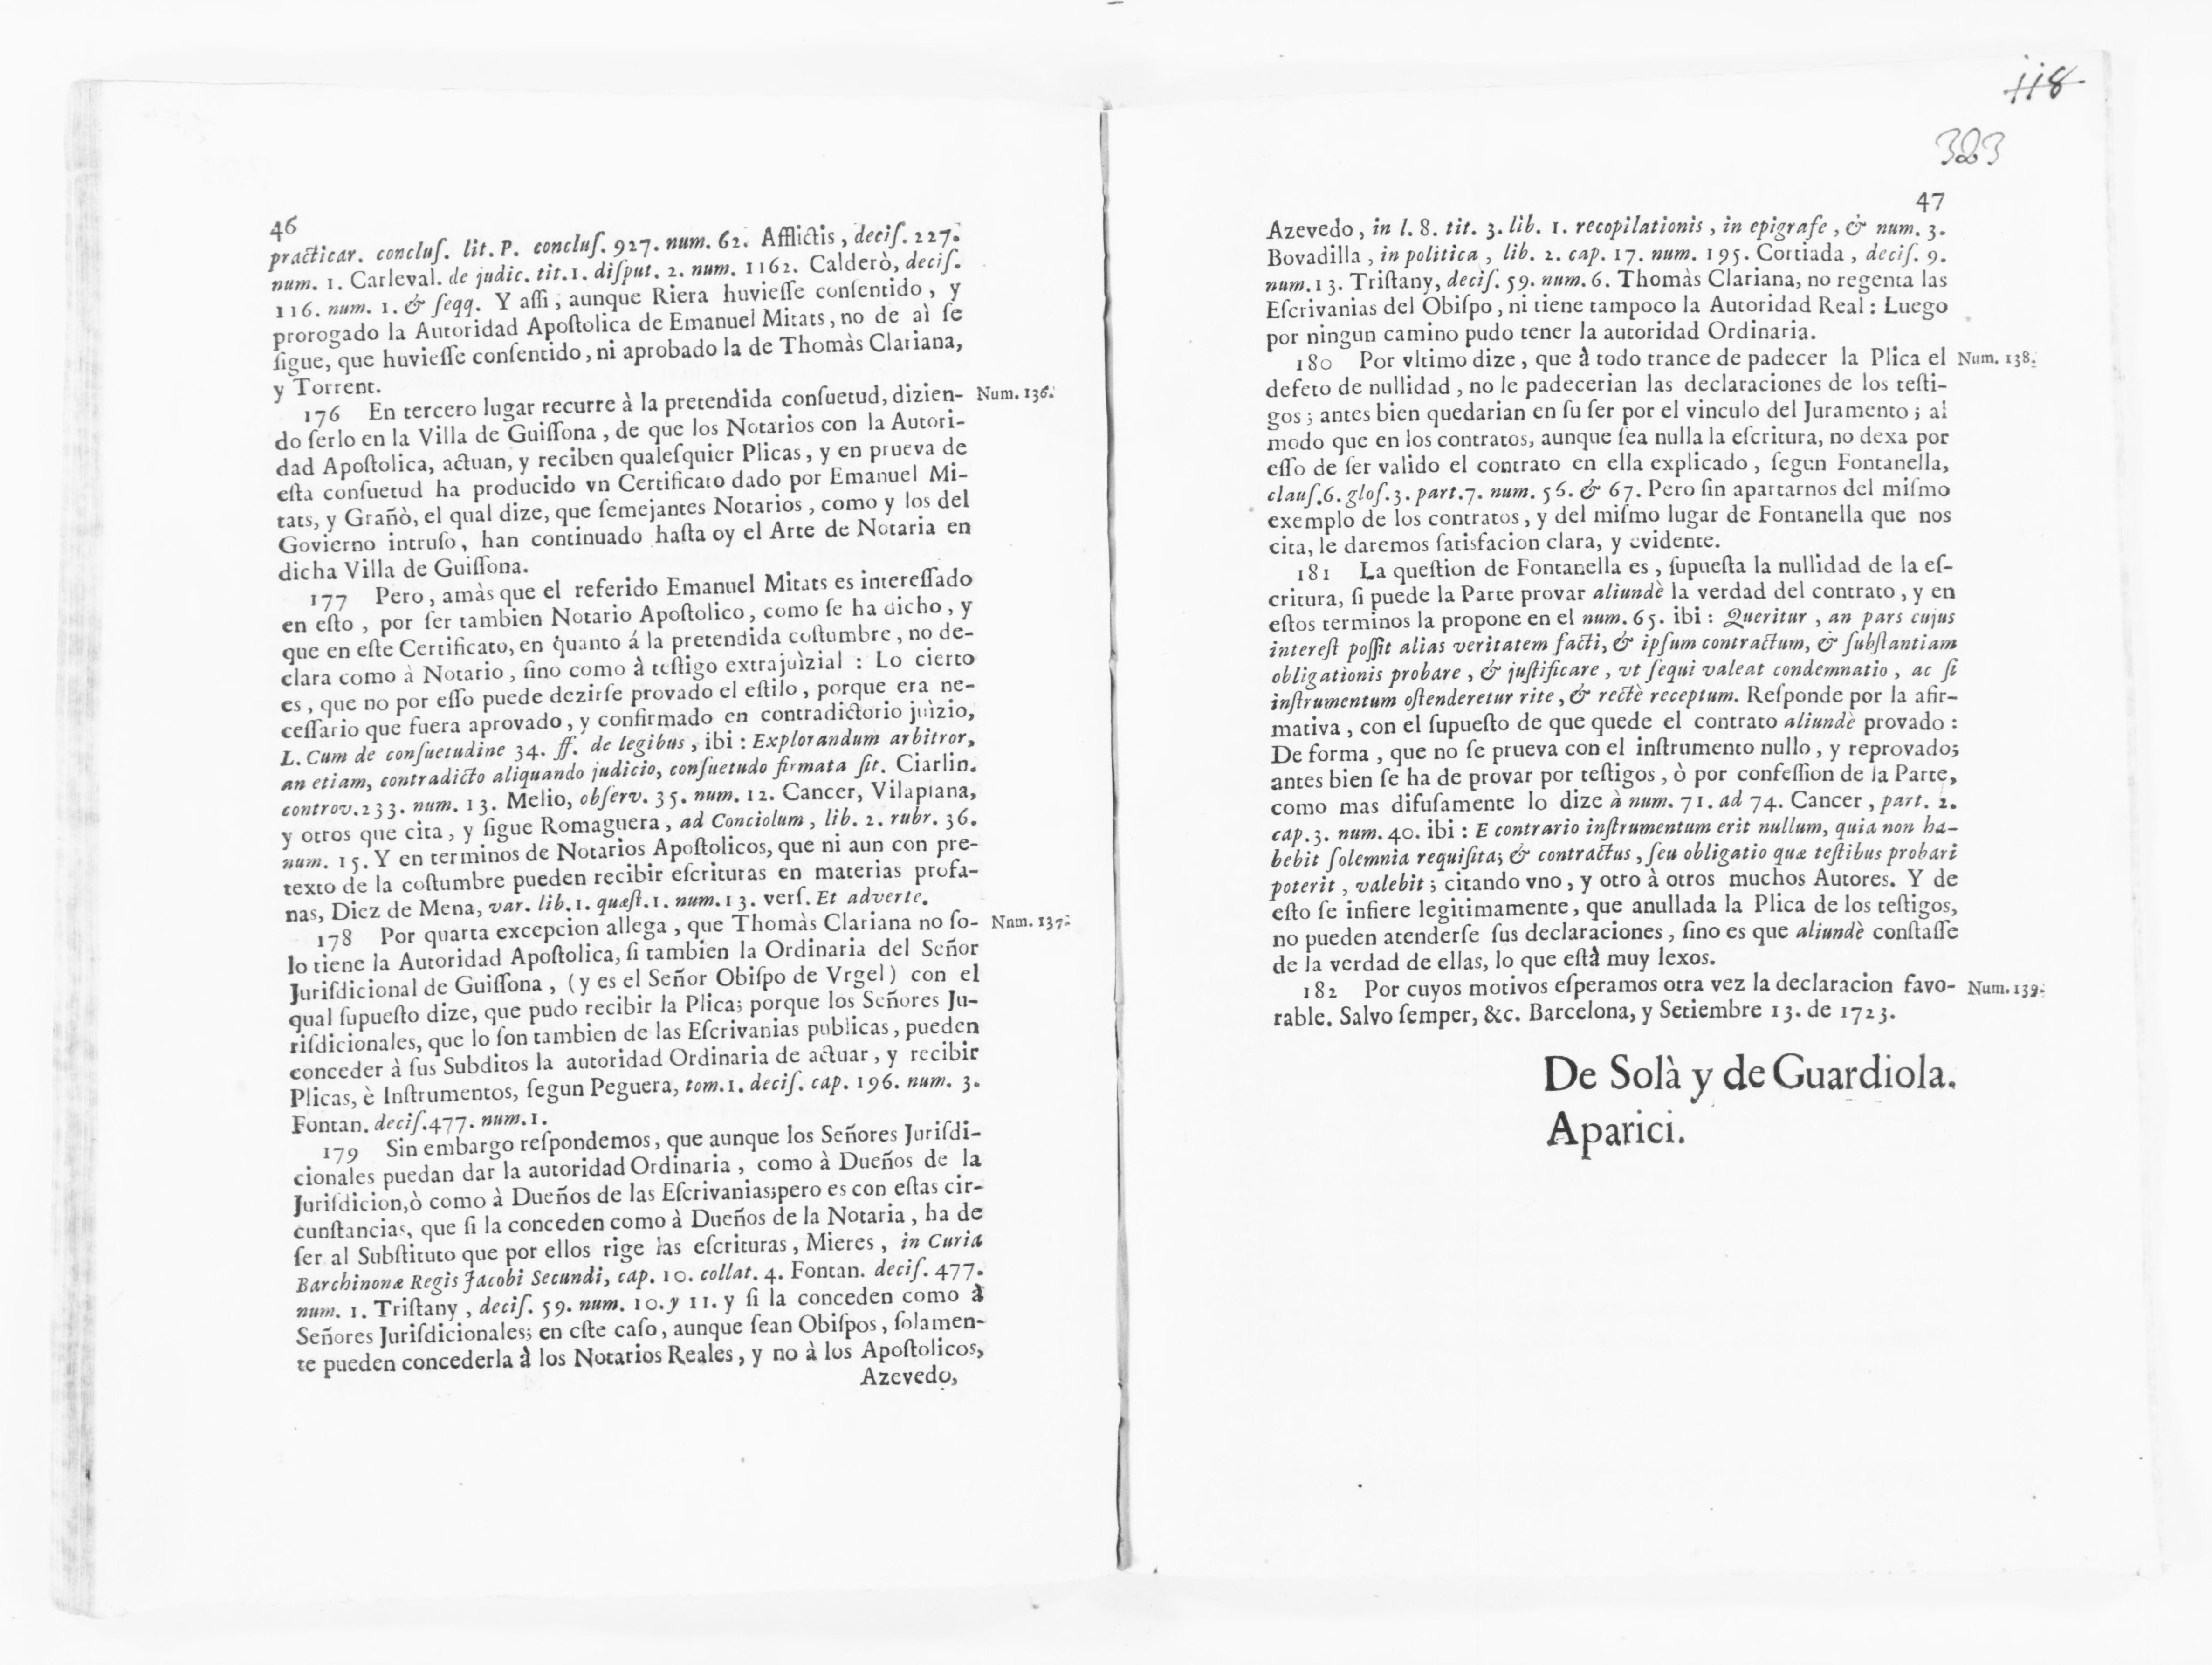 46
practicar. concluſ. lit. P. concluſ. 927. num. 62. Afflictis, deciſ. 227.
num. 1. Carleval. de judic. tit. 1. diſput. 2. num. 1162. Calderò, deciſ.
116. num. 1. & ſeqq. Y aſſi, aunque Riera huvieſſe conſentido, y
prorogado la Autoridad Apoſtolica de Emanuel Mitats, no de aì ſe
ſigue, que huvieſſe conſentido, ni aprobado la de Thomàs Clariana,
y Torrent.
176 En tercero lugar recurre à la pretendida conſuetud, dizien- Num. 136.
do ſerlo en la Villa de Guiſſona, de que los Notarios con la Autori-
dad Apoſtolica, actuan, y reciben qualeſquier Plicas, y en prueva de
eſta conſuetud ha producido vn Certificato dado por Emanuel Mi-
tats, y Grañò, el qual dize, que ſemejantes Notarios, como y los del
Govierno intruſo, han continuado haſta oy el Arte de Notaria en
dicha Villa de Guiſſona.
177 Pero, amàs que el referido Emanuel Mitats es intereſſado
en eſto, por ſer tambien Notario Apoſtolico, como ſe ha dicho, y
que en eſte Certificato, en quanto á la pretendida coſtumbre, no de-
clara como à Notario, ſino como à teſtigo extrajuìzial : Lo cierto
es, que no por eſſo puede dezirſe provado el eſtilo, porque era ne-
ceſſario que fuera aprovado, y confirmado en contradictorio juìzio,
L. Cum de conſuetudine 34. ff. de legibus, ibi : Explorandum arbitror,
an etiam, contradicto aliquando judicio, conſuetudo firmata ſit. Ciarlin.
controv. 233. num. 13. Melio, obſerv. 35. num. 12. Cancer, Vilaplana,
y otros que cita, y ſigue Romaguera, ad Conciolum, lib. 2. rubr. 36.
num. 15. Y en terminos de Notarios Apoſtolicos, que ni aun con pre-
texto de la coſtumbre pueden recibir eſcrituras en materias profa-
nas, Diez de Mena, var. lib. 1. quæſt. 1. num. 13. verſ. Et adverte.
178 Por quarta excepcion allega, que Thomàs Clariana no ſo- Nnm. 137.
lo tiene la Autoridad Apoſtolica, ſi tambien la Ordinaria del Señor
Juriſdicional de Guiſſona, (y es el Señor Obiſpo de Vrgel) con el
qual ſupueſto dize, que pudo recibir la Plica; porque los Señores Ju-
riſdicionales, que lo ſon tambien de las Eſcrivanias publicas, pueden
conceder à ſus Subditos la autoridad Ordinaria de actuar, y recibir
Plicas, è Inſtrumentos, ſegun Peguera, tom. 1. deciſ. cap. 196. num. 3.
Fontan. deciſ. 477. num. 1.
179 Sin embargo reſpondemos, que aunque los Señores Juriſdi-
cionales puedan dar la autoridad Ordinaria, como à Dueños de la
Juriſdicion, ò como à Dueños de las Eſcrivanias; pero es con eſtas cir-
cunſtancias, que ſi la conceden como à Dueños de la Notaria, ha de
ſer al Subſtituto que por ellos rige las eſcrituras, Mieres, in Curia
Barchinonæ Regis Jacobi Secundi, cap. 10. collat. 4. Fontan. deciſ. 477.
num. 1. Triſtany, deciſ. 59. num. 10. y 11. y ſi la conceden como à
Señores Juriſdicionales; en eſte caſo, aunque ſean Obiſpos, ſolamen-
te pueden concederla à los Notarios Reales, y no à los Apoſtolicos,
Azevedo,
118
323
47
Azevedo, in l. 8. tit. 3. lib. 1. recopilationis, in epigrafe, & num. 3.
Bovadilla, in politica, lib. 2. cap. 17. num. 195. Cortiada, deciſ. 9.
num. 13. Triſtany, deciſ. 59. num. 6. Thomàs Clariana, no regenta las
Eſcrivanias del Obiſpo, ni tiene tampoco la Autoridad Real : Luego
por ningun camino pudo tener la autoridad Ordinaria.
180 Por vltimo dize, que à todo trance de padecer la Plica el Num. 138.
defeto de nullidad, no le padecerian las declaraciones de los teſti-
gos ; antes bien quedarian en ſu ſer por el vinculo del Juramento ; al
modo que en los contratos, aunque ſea nulla la eſcritura, no dexa por
eſſo de ſer valido el contrato en ella explicado, ſegun Fontanella,
clauſ. 6. gloſ. 3. part. 7. num. 56. & 67. Pero ſin apartarnos del miſmo
exemplo de los contratos, y del miſmo lugar de Fontanella que nos
cita, le daremos ſatisfacion clara, y evidente.
181 La queſtion de Fontanella es, ſupueſta la nullidad de la eſ-
critura, ſi puede la Parte provar aliundè la verdad del contrato, y en
eſtos terminos la propone en el num. 65. ibi : Queritur, an pars cujus
intereſt poſſit alias veritatem facti, & ipſum contractum, & ſubſtantiam
obligationis probare, & juſtificare, vt ſequi valeat condemnatio, ac ſi
inſtrumentum oſtenderetur rite, & rectè receptum. Reſponde por la afir-
mativa, con el ſupueſto de que quede el contrato aliundè provado :
De forma, que no ſe prueva con el inſtrumento nullo, y reprovado;
antes bien ſe ha de provar por teſtigos, ò por confeſſion de la Parte,
como mas difuſamente lo dize à num. 71. ad 74. Cancer, part. 2.
cap. 3. num. 40. ibi : E contrario inſtrumentum erit nullum, quia non ha-
bebit ſolemnia requiſita; & contractus, ſeu obligatio quæ teſtibus probari
poterit, valebit ; citando vno, y otro à otros muchos Autores. Y de
eſto ſe infiere legitimamente, que anullada la Plica de los teſtigos,
no pueden atenderſe ſus declaraciones, ſino es que aliundè conſtaſſe
de la verdad de ellas, lo que eſtà muy lexos.
182 Por cuyos motivos eſperamos otra vez la declaracion favo- Num. 139.
rable. Salvo ſemper, &c. Barcelona, y Setiembre 13. de 1723.
De Solà y de Guardiola.
Aparici.